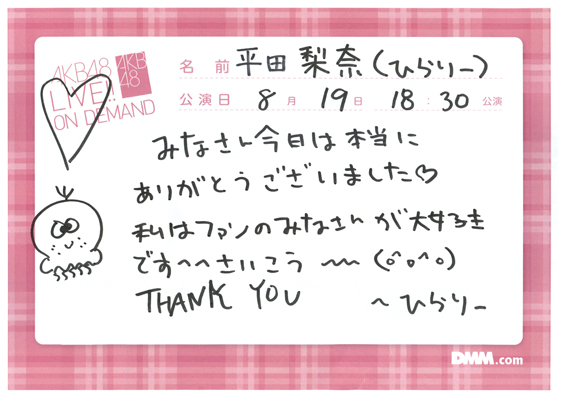 AKB48
LIVE!!
ON DEMAND
AKB
48
名 前 平田 梨奈 (ひらりー)
公演日 8月 19日 18:30公演
みなさん今日は本当に
ありがとうございました♡
私はファンのみなさんが大好き
です〜〜さいこう 〜〜 (o^o^o)
THANK YOU 〜ひらりー
DMM.com